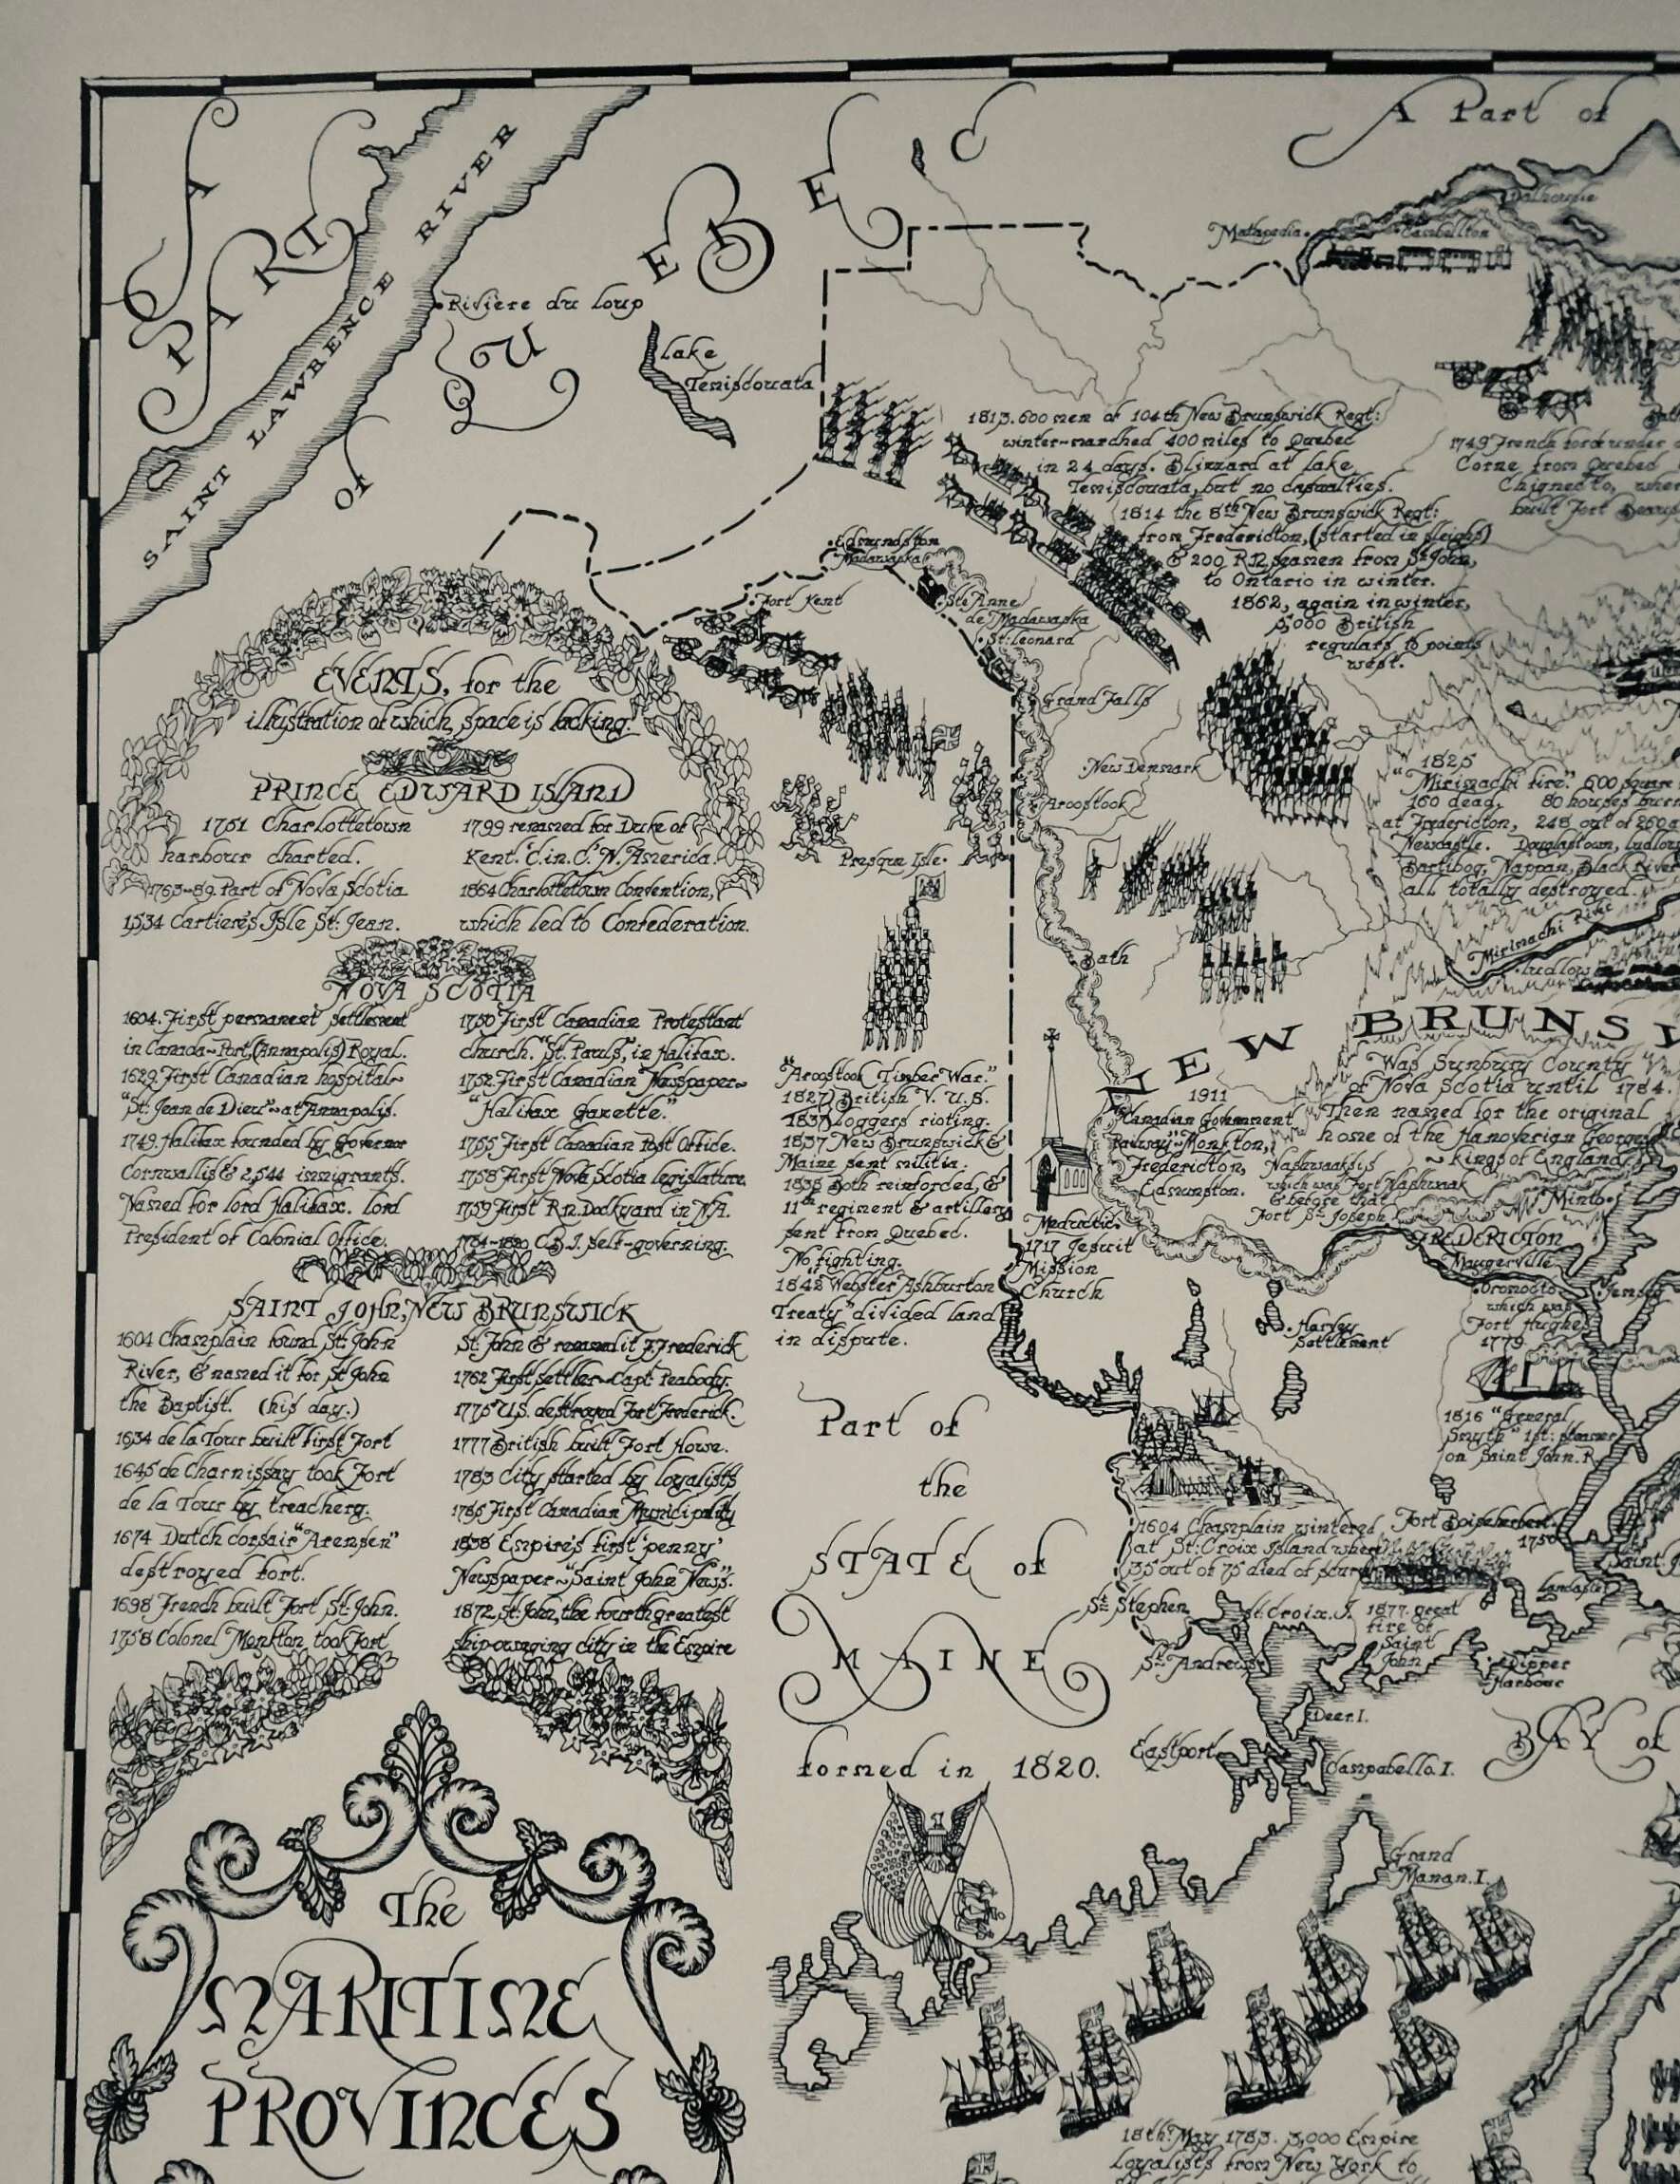 A PART of QUEBEC
SAINT LAWRENCE RIVER
Rivière du loup
Lake
Temisdouata
A Part of
Matapedia
Dalhousie
Cambellton
1813. 600 men of 104th New Brunswick Regt:
winter-marched 400 miles to Quebec
in 24 days. Blizzard at Lake
Temisdouata, but no casualties.
1814 the 8th New Brunswick Regt:
from Fredericton, (started in sleighs)
& 200 R.N. seamen from St John,
to Ontario in winter.
1862, again in winter,
5,000 British
regulars to points
west.
1749 French force under
Corne from Quebec
Chignecto, where
built Fort Beausej
Edmundston
Madawaska
Fort Kent
Ste Anne
de Madawaska
St: Leonard
Grand Falls
New Denmark
Aroostook
Presque Isle.
Bath
EVENTS, for the
illustration of which, space is lacking.
PRINCE EDWARD ISLAND
1751 Charlottetown
harbour charted.
1763-69. Part of Nova Scotia
1534 Cartier's Isle St: Jean.
1799 renamed for Duke of
Kent. C.in.C. N. America.
1864 Charlottetown Convention,
which led to Confederation.
NOVA SCOTIA
1604. First permanent settlement
in Canada~Port, (Annapolis) Royal.
1629. First Canadian hospital~
"St: Jean de Dieu"~at Annapolis.
1749. Halifax founded by Governor
Cornwallis & 2,544 immigrants.
Named for lord Halifax. lord
President of Colonial Office.
1750 First Canadian Protestant
church. "St. Pauls", in Halifax.
1752. First Canadian Newspaper~
"Halifax Gazette."
1755 First Canadian Post Office.
1758 First Nova Scotia legislature.
1759 First R.N. Dockyard in N.A.
1784-1820 C.B.I. self-governing.
SAINT JOHN, NEW BRUNSWICK
1604 Champlain found St: John
River, & named it for St John
the Baptist. (his day.)
1634 de la Tour built first Fort
1645 de Charnissay took Fort
de la Tour by treachery.
1674 Dutch corsair "Arensen"
destroyed fort.
1698 French built Fort St: John.
1758 Colonel Monkton took Fort
St: John & renamed it F. Frederick
1762 First settler~Capt Peabody.
1775 U.S. destroyed Fort Frederick.
1777 British built Fort Howe.
1783 City started by loyalists
1785 First Canadian Municipality
1838 Empire's first 'penny'
Newspaper~"Saint John News".
1872, St: John, the fourth greatest
ship-owning city in the Empire
"Aroostook Timber War."
1827 British V. U.S.
1837 loggers rioting.
1837 New Brunswick &
Maine sent militia.
1838 Both reinforced, &
11th regiment & artillery
sent from Quebec.
No fighting.
1842 "Webster Ashburton
Treaty" divided land
in dispute.
1825
"Mirimachi fire". 600 square
160 dead. 80 houses burn
at Fredericton, 248 out of 260 a
Newcastle. Douglastown, Ludlow
Bartibog, Nappan, Black River
all totally destroyed.
Mirimachi
Ludlow
NEW BRUNSW
Was Sunbury County
of Nova Scotia until 1784.
Then named for the original
home of the Hanoverian Georges
~ kings of England
1911
"Canadian Government
Railway"~Monkton,
Fredericton,
Edmunston.
Nashwaaksis
which was Fort Nashwaak
& before that
Fort St: Joseph
Minto
FREDERICTON
Maugerville
Oromocto
which was
Fort Hughes
1779
Jemseg
Meductic.
1717 Jesuit
Mission
Church
Harvey
Settlement
1816 "General
Smyth" 1st: steamer
on Saint John. R.
Fort Boishebert.
1750
1604 Champlain wintered
at St: Croix Island where
35 out of 75 died of scurvy
Saint.J
Lancaster
St: Stephen
St. Croix. I.
1877. great
fire of
Saint
John
St: Andrews
Dipper
Harbour
Deer. I.
Eastport
Campabello. I.
BAY of
Grand
Manan. I.
Part of
the
STATE of
MAINE
formed in 1820.
The
MARITIME
PROVINCES
18th: May 1783. 3,000 Empire
Loyalists from New York to